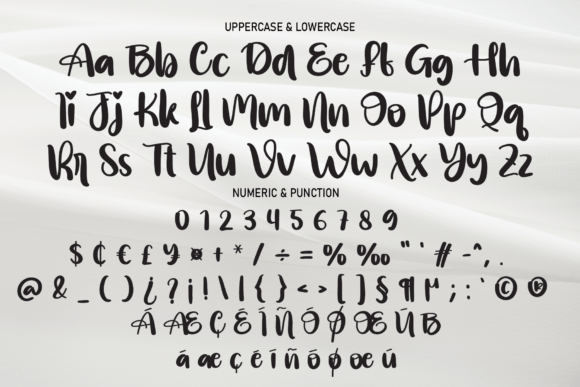 UPPERCASE & LOWERCASE
Aa Bb Cc Dd Ee Ff Gg Hh
Ii Jj Kk Ll Mm Nn Oo Pp Qq
Rr Ss Tt Uu Vv Ww Xx Yy Zz
NUMERIC & PUNCTION
0 1 2 3 4 5 6 7 8 9
$ ₵ € £ ¥ ¤ + * / ÷ = % ‰ " ' # - ^ , .
@ & _ ( ) ¿ ? ¡ ! \ | { } < > [ ] § ¶ µ ; : ` © ®
Á Æ Ç Ë Í Ñ Ó Ø Œ Ú ß
á æ ç ë í ñ ó ø œ ú